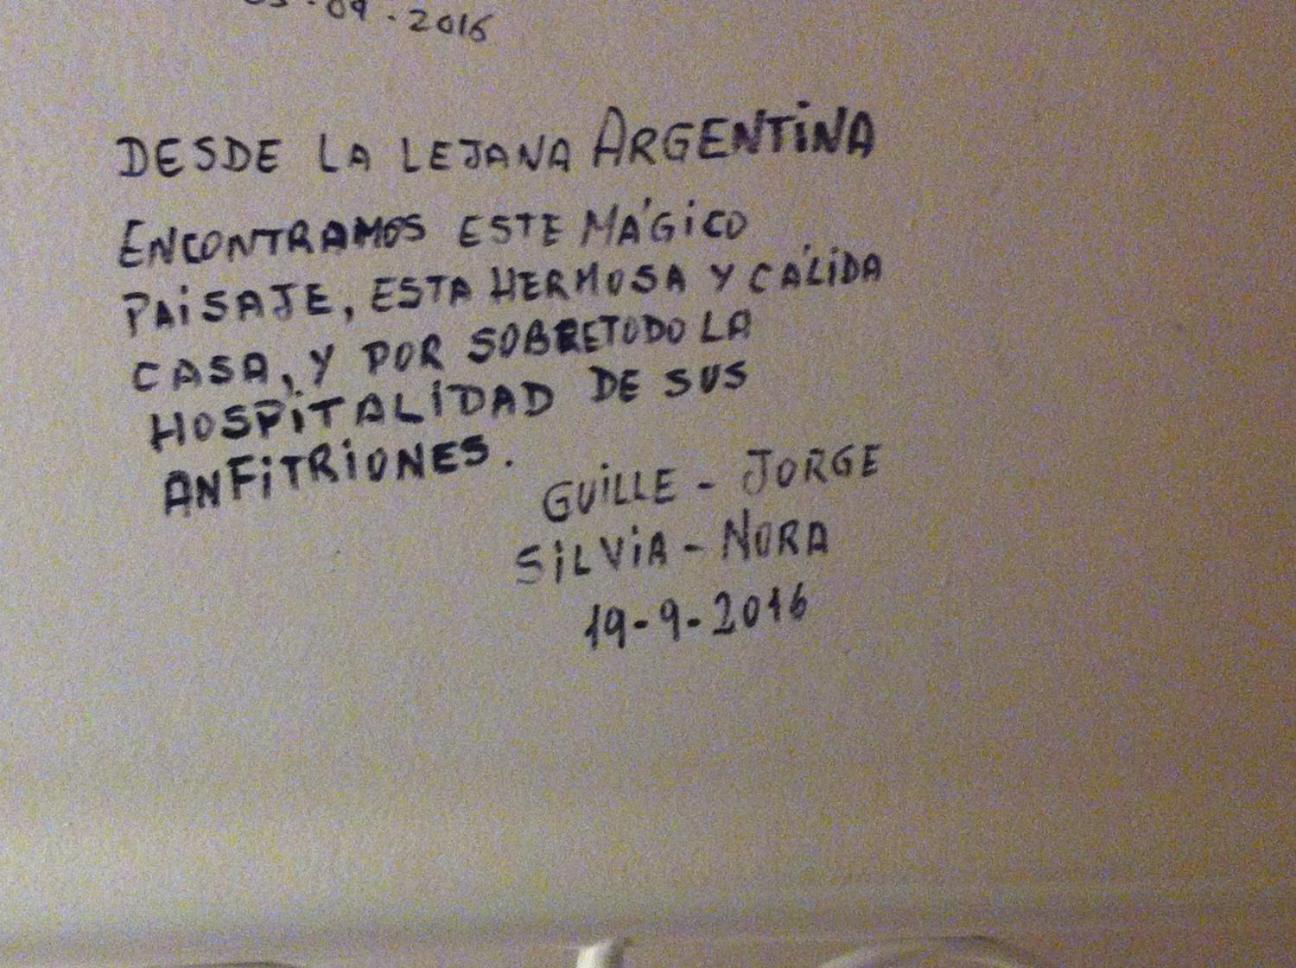 09.2016
DESDE LA LEJANA ARGENTINA
ENCONTRAMOS ESTE MÁGICO
PAISAJE, ESTA HERMOSA Y CÁLIDA
CASA, Y POR SOBRETODO LA
HOSPITALIDAD DE SUS
ANFITRIONES.
GUILLE - JORGE
SILVIA - NORA
19-9-2016